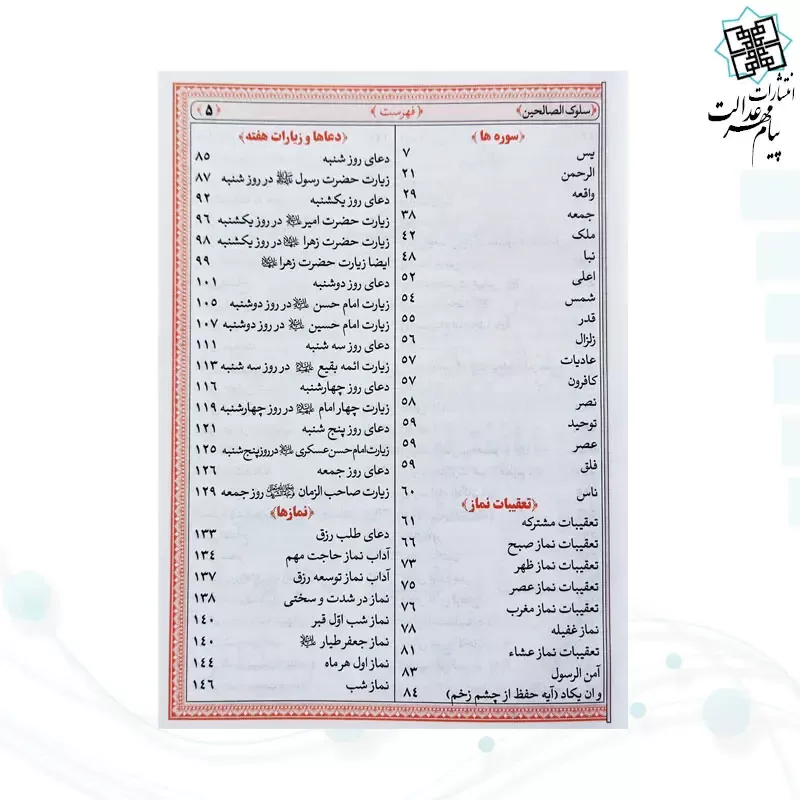 انتشارات
پیام مهر عدالت
سلوک الصالحین
فهرست
۵
سوره ها
یس ۷
الرحمن ۲۱
واقعه ۲۹
جمعه ۳۸
ملک ۴۲
نبا ۴۸
اعلی ۵۲
شمس ۵۴
قدر ۵۵
زلزال ۵۶
عادیات ۵۷
کافرون ۵۷
نصر ۵۸
توحید ۵۹
عصر ۵۹
فلق ۵۹
ناس ۶۰
تعقیبات نماز
تعقیبات مشترکه ۶۱
تعقیبات نماز صبح ۶۶
تعقیبات نماز ظهر ۷۳
تعقیبات نماز عصر ۷۵
تعقیبات نماز مغرب ۷۶
نماز غفیله ۷۸
تعقیبات نماز عشاء ۸۱
آمن الرسول ۸۳
و ان یکاد (آیه حفظ از چشم زخم) ۸۴
دعاها و زیارات هفته
دعای روز شنبه ۸۵
زیارت حضرت رسول ﷺ در روز شنبه ۸۷
دعای روز یکشنبه ۹۲
زیارت حضرت امیر در روز یکشنبه ۹۶
زیارت حضرت زهرا در روز یکشنبه ۹۸
ایضا زیارت حضرت زهرا ۹۹
دعای روز دوشنبه ۱۰۱
زیارت امام حسن در روز دوشنبه ۱۰۵
زیارت امام حسین در روز دوشنبه ۱۰۷
دعای روز سه شنبه ۱۱۱
زیارت ائمه بقیع در روز سه شنبه ۱۱۳
دعای روز چهارشنبه ۱۱۶
زیارت چهار امام در روز چهارشنبه ۱۱۹
دعای روز پنج شنبه ۱۲۱
زیارت امام حسن عسکری در روز پنج شنبه ۱۲۵
دعای روز جمعه ۱۲۶
زیارت صاحب الزمان روز جمعه ۱۲۹
نمازها
دعای طلب رزق ۱۳۳
آداب نماز حاجت مهم ۱۳۴
آداب نماز توسعه رزق ۱۳۷
نماز در شدت و سختی ۱۳۸
نماز شب اوّل قبر ۱۴۰
نماز جعفر طیار ۱۴۰
نماز اول هر ماه ۱۴۴
نماز شب ۱۴۶